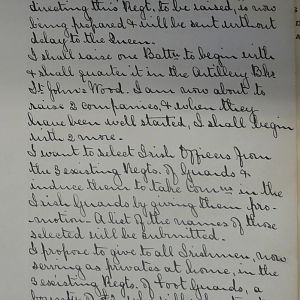 directing this Regt. to be raised, is now
being prepared & will be sent without
delay to the Queen.
I shall raise one Battn. to begin with
& shall quarter it in the Artillery Bks
St John's Wood. I am now about to
raise 2 companies, & when they
have been well started, I shall begin
with 2 more.
I want to select Irish Officers from
the 3 existing Regts. of Guards &
induce them to take Comns in the
Irish Guards by giving them pro-
-motion. A list of the names of those
selected will be submitted.
I propose to give to all Irishmen, now
serving as privates at home, in the
3 existing Regts. of Foot Guards, a